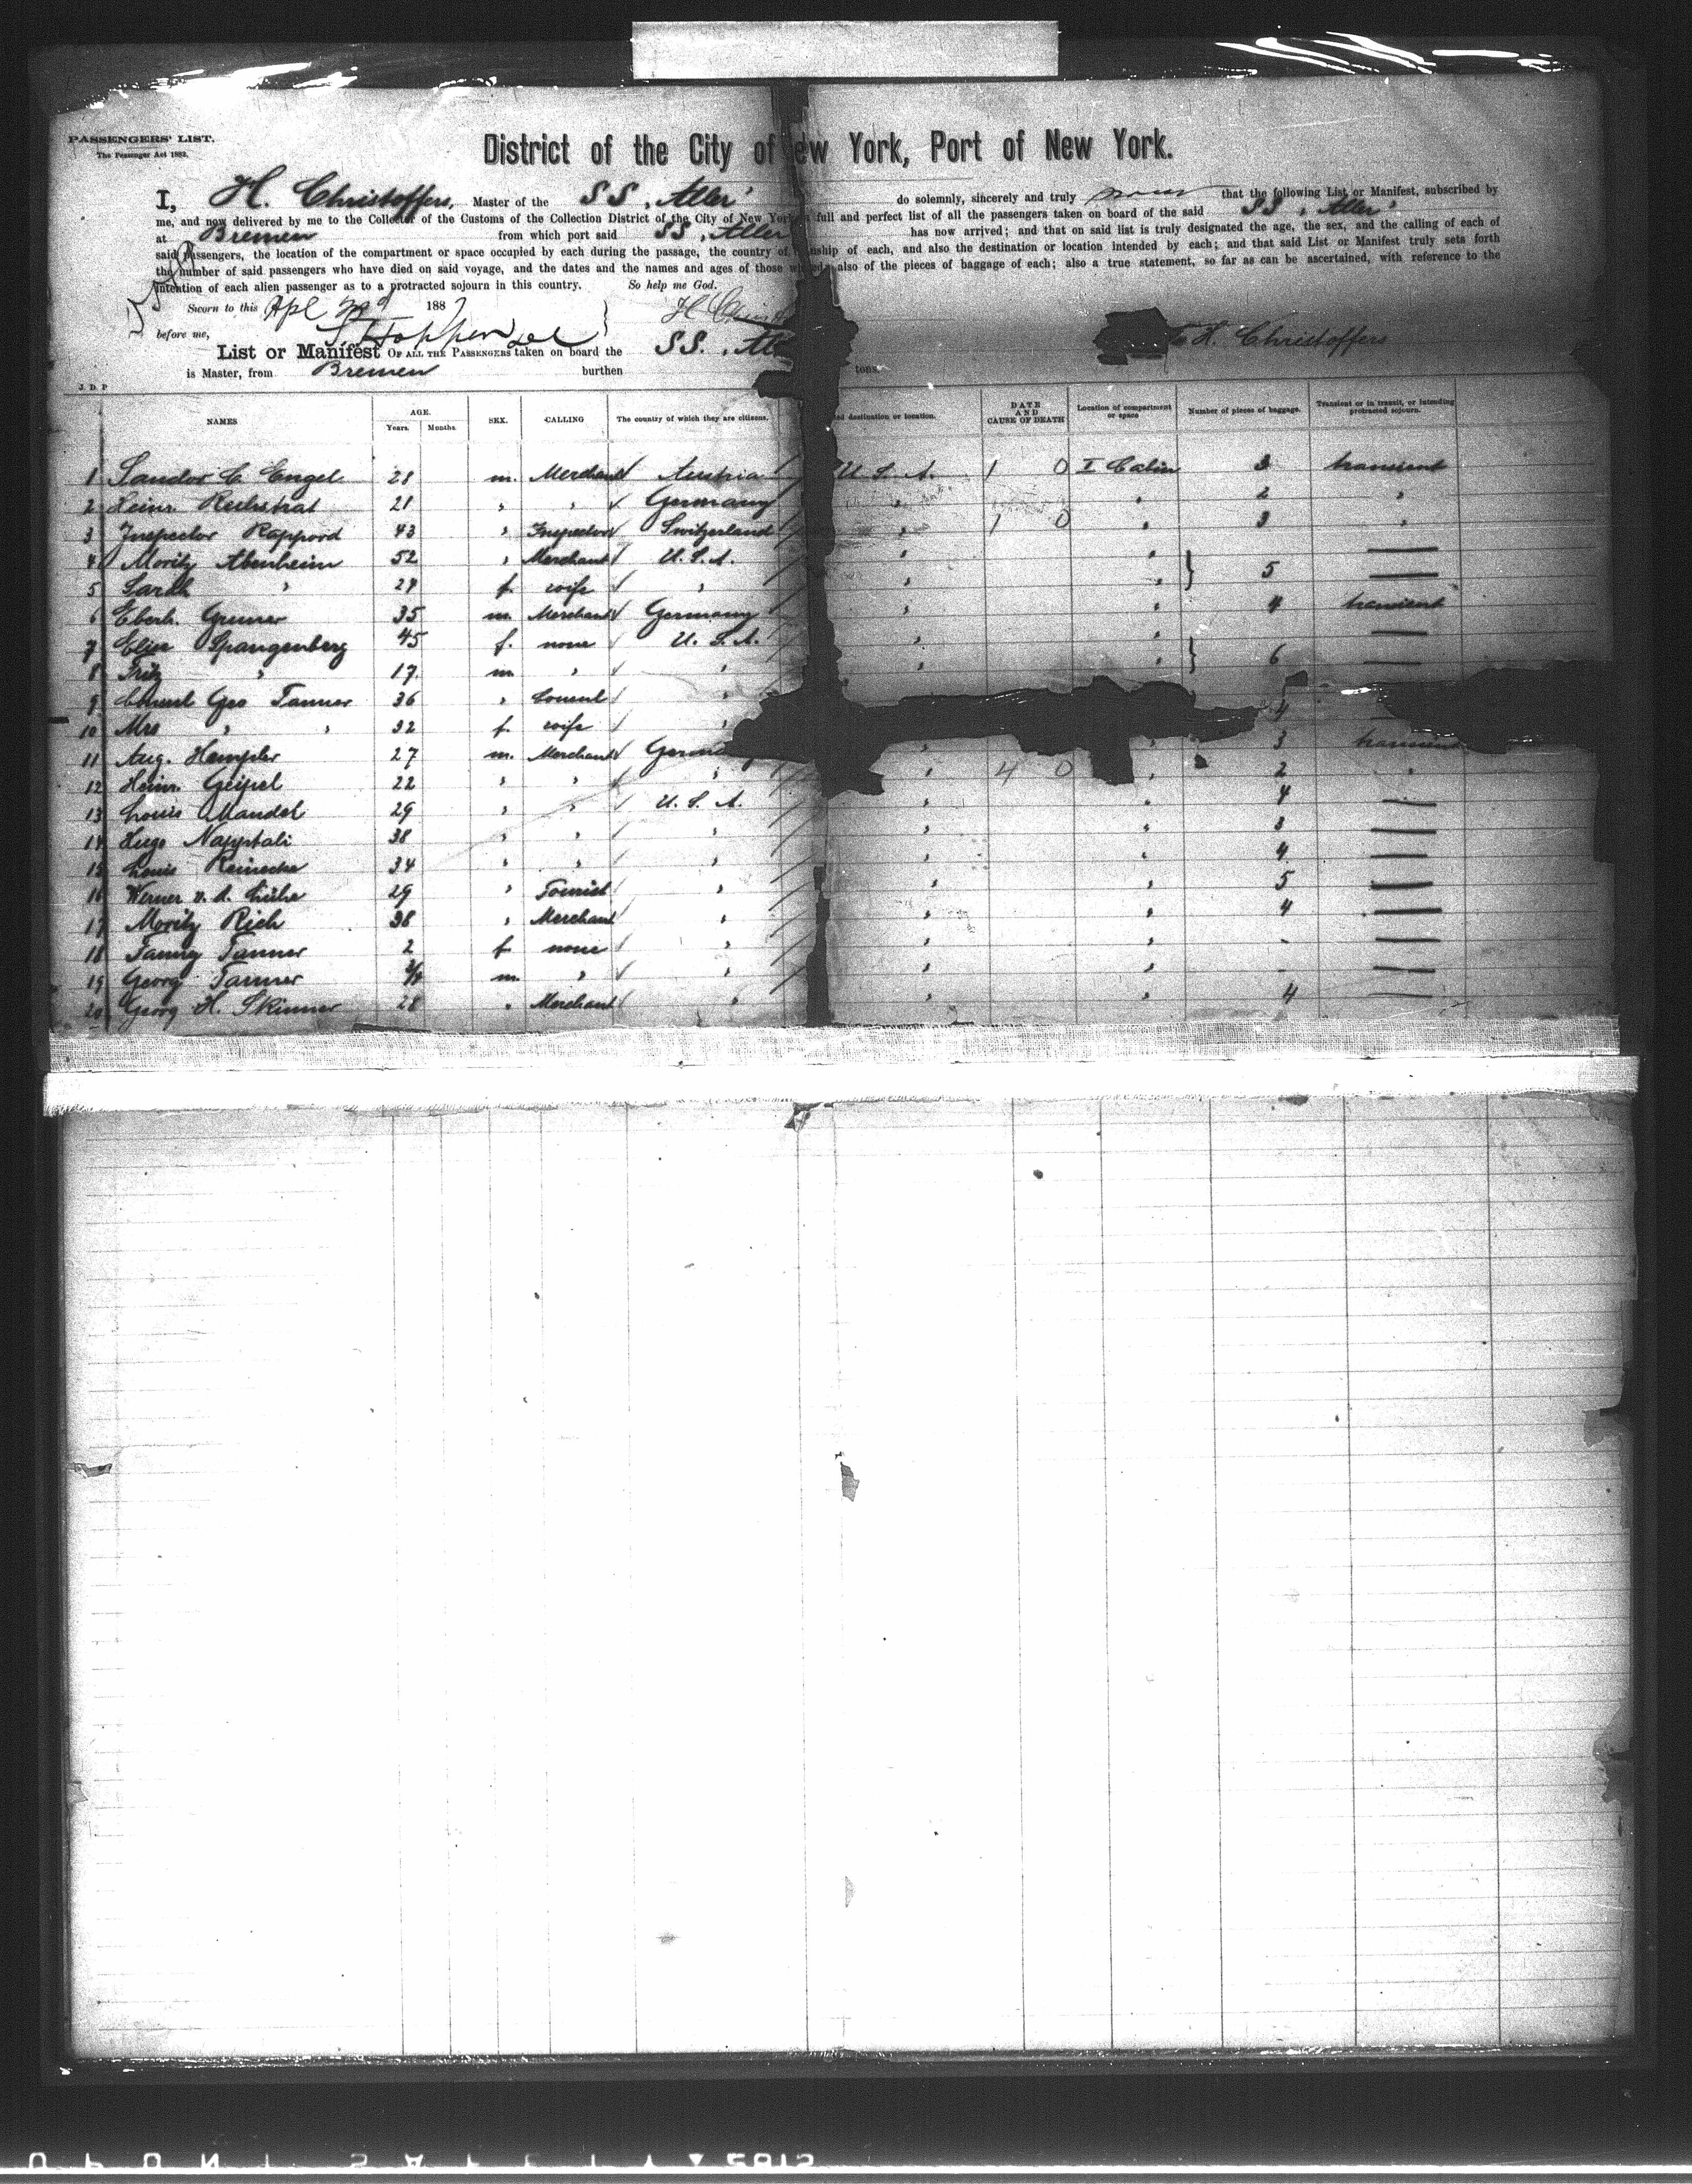 PASSENGERS' LIST.
The Passenger Act 1882.
District of the City of ew York, Port of New York.
I, H. Christoffers, Master of the SS „Aller" do solemnly, sincerely and truly that the following List or Manifest, subscribed by
me, and now delivered by me to the Collector of the Customs of the Collection District of the City of New York full and perfect list of all the passengers taken on board of the said SS „Aller"
at Bremen from which port said SS „Aller has now arrived; and that on said list is truly designated the age, the sex, and the calling of each of
said passengers, the location of the compartment or space occupied by each during the passage, the country of nship of each, and also the destination or location intended by each; and that said List or Manifest truly sets forth
the number of said passengers who have died on said voyage, and the dates and the names and ages of those also of the pieces of baggage of each; also a true statement, so far as can be ascertained, with reference to the
intention of each alien passenger as to a protracted sojourn in this country. So help me God.
Sworn to this Apl 1887
before me,
List or Manifest OF ALL THE PASSENGERS taken on board the SS. H. Christoffers
is Master, from Bremen burthen tons
J. D. P
NAMES AGE. Years. Months. SEX. CALLING The country of which they are citizens. destination or location. DATE AND CAUSE OF DEATH Location of compartment or space Number of pieces of baggage. Transient or in transit, or intending protracted sojourn.
1 Sandor C. Engel 28 m. Merchant Austria U. S. A. 1 0 I Cabin 3 transient
2 Heinr. 21 " " Germany " " 2 "
3 Inspector Rappord 43 " Inspector Switzerland " 1 0 " 3 "
4 Moritz Abenheim 52 " Merchant U. S. A. " " —
5 Sarah " 29 f. wife " " " } 5 —
6 Eberh. Gruner 35 m. Merchant Germany " " 4 transient
7 Elise Spangenberg 45 f. none U. S. A. " " —
8 Fritz " 17 m. " " " " } 6 —
9 Consul Geo Tanner 36 " Consul "
10 Mrs " " 32 f. wife " 4 —
11 Aug. Hempler 27 m. Merchant Germa " " 3 transient
12 Heinr. Geipel 22 " " " " 4 0 " 2 "
13 Louis Mandel 29 " " U. S. A. " " 4 —
14 Hugo Napptali 38 " " " " " 3 —
15 Louis Reinecke 34 " " " " " 4 —
16 Werner v. d. Lühe 29 " Tourist " " " 5 —
17 Moritz Rich 38 " Merchant " " " 4 —
18 Fanny Tanner 2 f. none " " " - —
19 Georg Tanner m. " " " " - —
20 Georg H. Skinner 28 " Merchant " " " 4 —